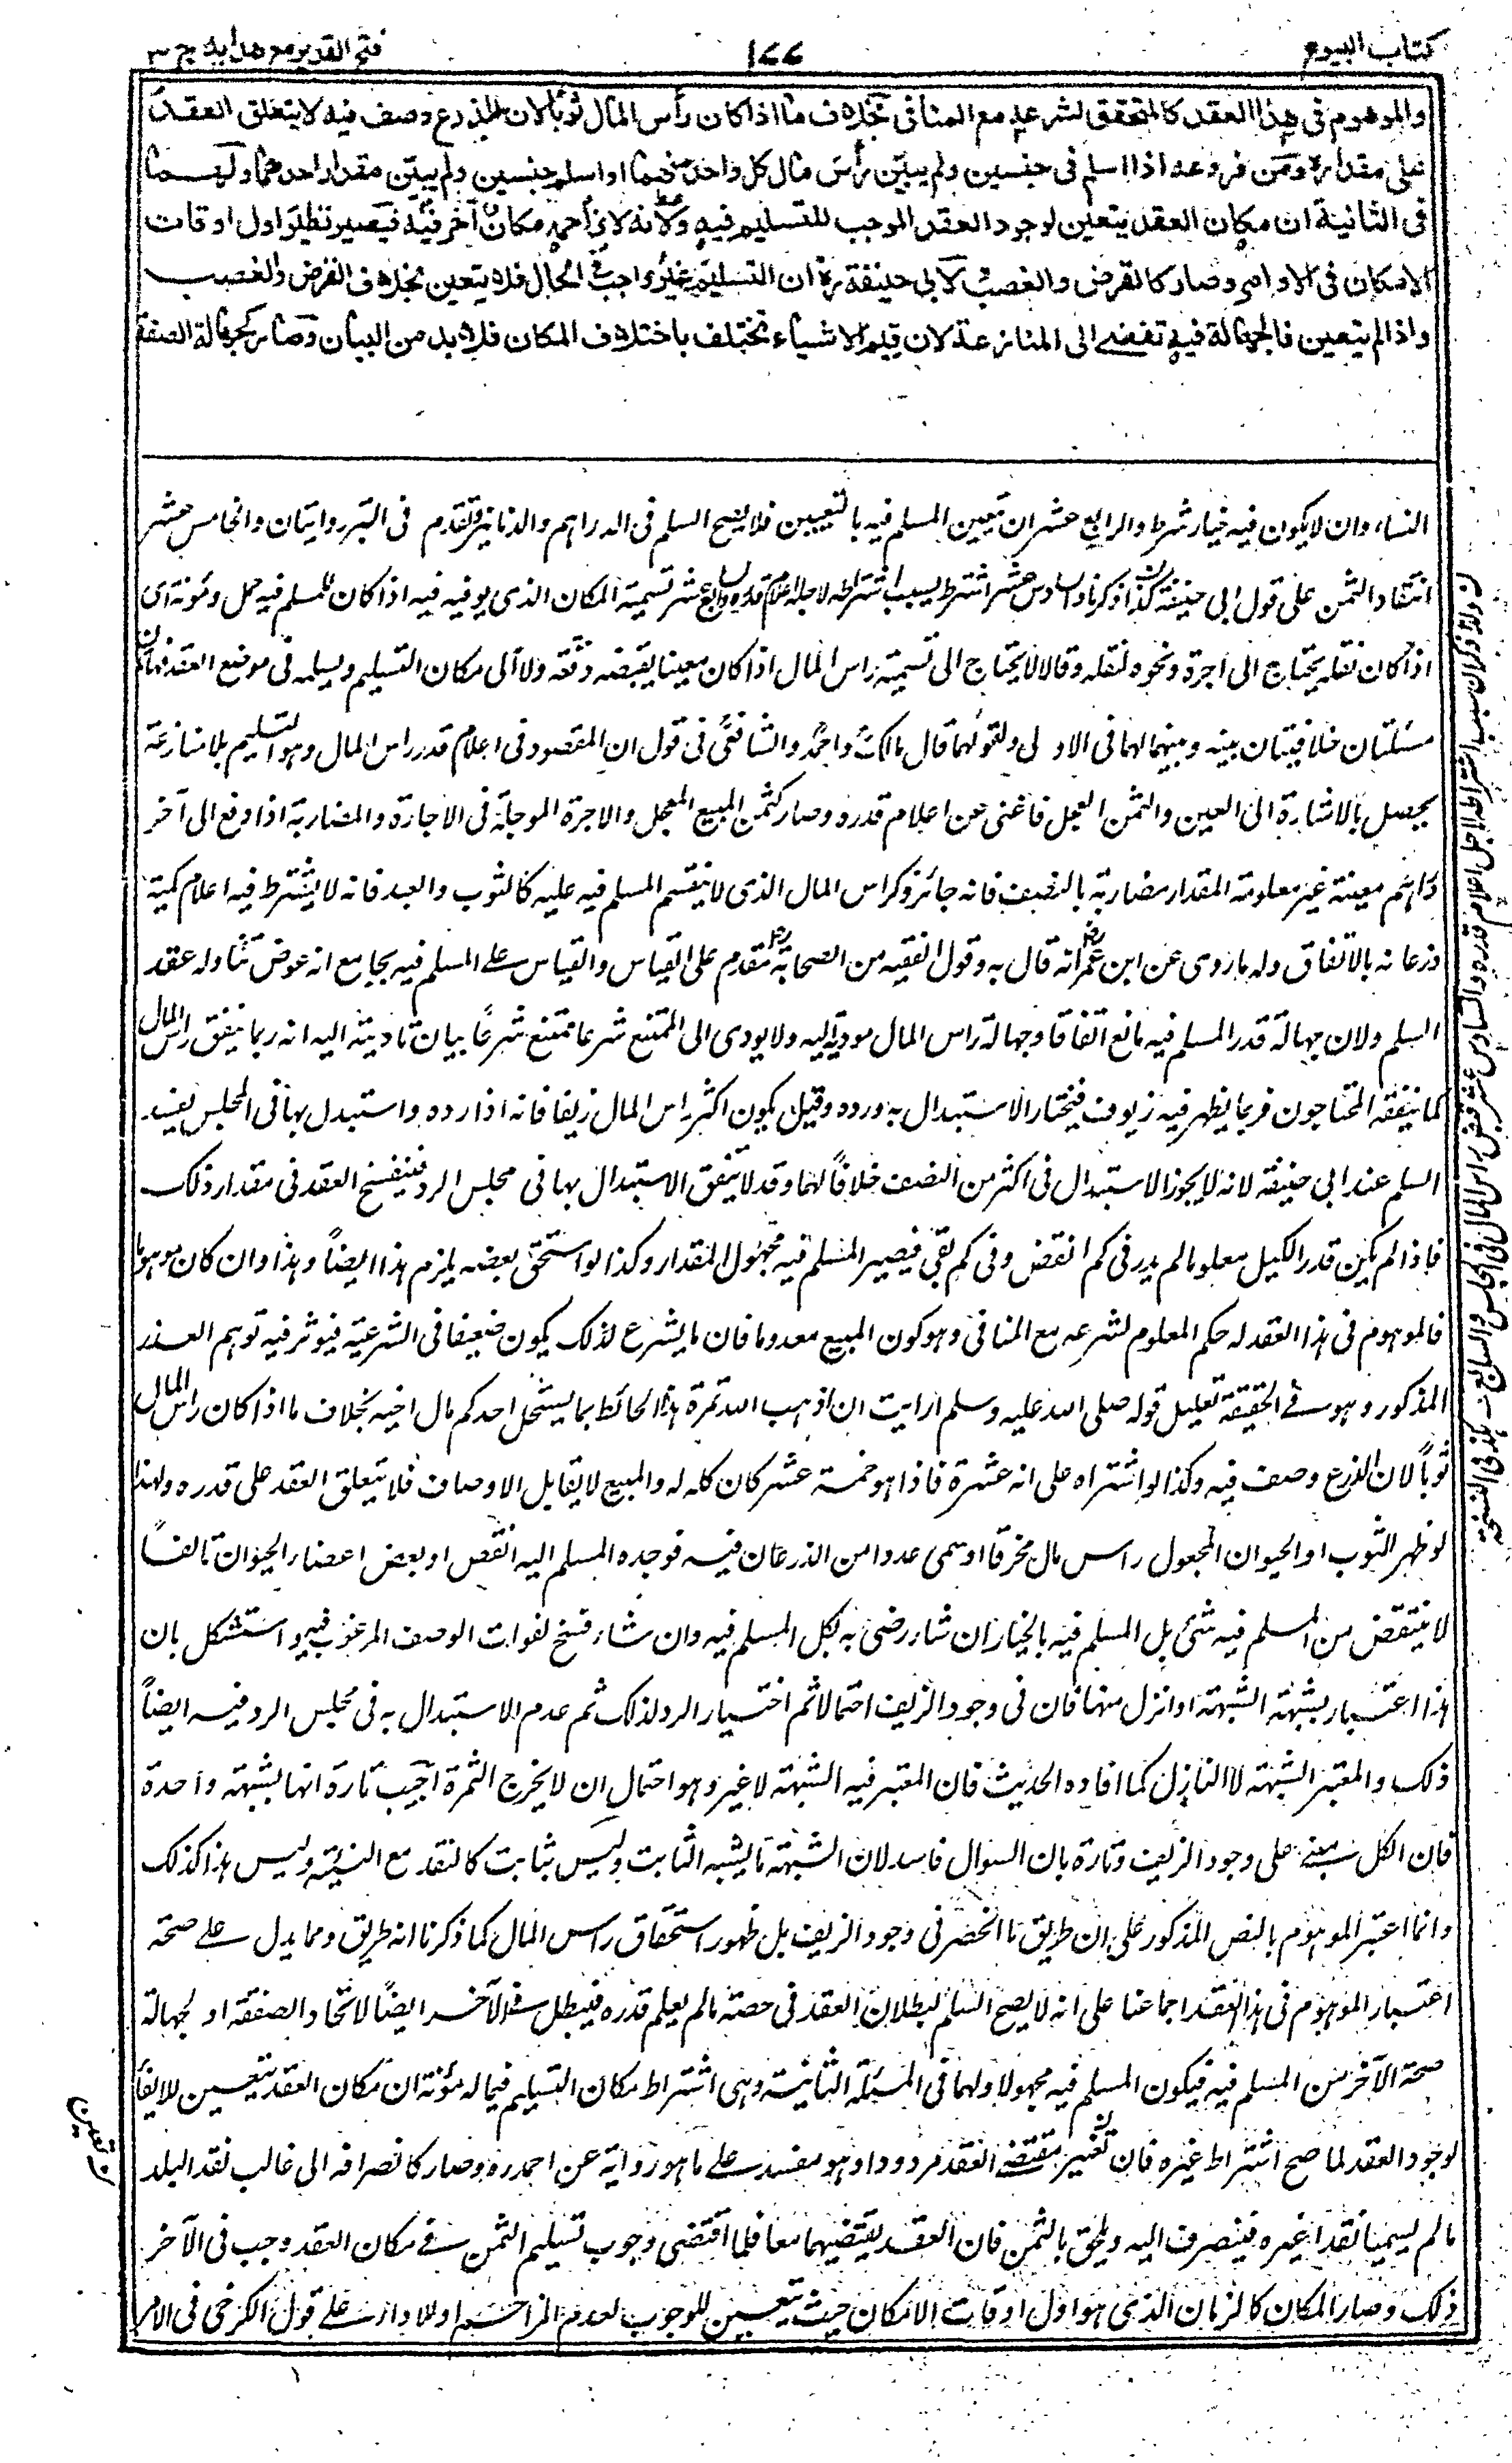 كتاب البيوع
١٧٧
فتح القدير مع هدايه ج ٣
والموهوم فى هذا العقد كالمتحقق لشرعه مع المنافى بخلاف ما اذا كان رأس المال ثوبا لان الذرع وصف فيه لا يتعلق العقد
على مقداره ومن فروعه اذا اسلم فى جنسين ولم يبين رأس مال كل واحد منهما او اسلم جنسين ولم يبين مقدار احدهما ولهما
فى الثانية ان مكان العقد يتعين لوجود العقد الموجب للتسليم فيه ولانه لا يزاحمه مكان آخر فيه فيصير نظير اول اوقات
الامكان فى الاوامر وصار كالقرض والغصب ولابى حنيفة رح ان التسليم غير واجب فى الحال فلا يتعين بخلاف القرض والغصب
واذا لم يتعين فالجهالة فيه تفضى الى المنازعة لان قيم الاشياء تختلف باختلاف المكان فلا بد من البيان وصار كجهالة الصفة
النساء وان لا يكون فيه خيار شرط والرابع عشر ان يتعين المسلم فيه بالتعيين فلا يصح السلم فى الدراهم والدنانير وتقدم فى التبر روايتان والخامس عشر
انتقاد الثمن على قول ابى حنيفة كذا ذكرنا والسادس عشر اشتراط بسبب اشتراطه لاجله اعلام قدره والسابع عشر تسمية المكان الذى يوفيه فيه اذا كان للمسلم فيه حمل ومئونة اى
اذا كان نقله يحتاج الى اجرة ونحوه لنقله وقالا لا يحتاج الى تسمية راس المال اذا كان معينا يقبضه دفعة ولا الى مكان التسليم ويسلمه فى موضع العقد فهاتان
مسئلتان خلافيتان بينه وبينهما لهما فى الاولى ولقولهما قال مالك واحمد والشافعى فى قول ان المقصود فى اعلام قدر راس المال وهو التسليم بلا منازعة
يحصل بالاشارة الى العين والثمن المعجل فاغنى عن اعلام قدره وصار كثمن المبيع المعجل والاجرة الموجلة فى الاجارة والمضاربة اذا دفع الى آخر
دراهم معينة غير معلومة المقدار مضاربة بالنصف فانه جائز وكراس المال الذى لا ينقسم المسلم فيه عليه كالثوب والعبد فانه لا يشترط فيه اعلام كمية
ذرعانه بالاتفاق وله ما روى عن ابن عمر رض انه قال به وقول الفقيه من الصحابة رض مقدم على القياس والقياس على المسلم فيه بجامع انه عوض تناوله عقد
السلم ولان جهالة قدر المسلم فيه مانع اتفاقا وجهالة راس المال مودية اليه ولا يودى الى الممتنع شرعا ممتنع شرعًا بيان تاديته اليه انه ربما ينفق راس المال
كما ينفقه المحتاجون فربما يظهر فيه زيوف فيختار الاستبدال به ورده وقيل يكون اكثر راس المال زيفا فانه اذا رده واستبدل بها فى المجلس يفسد
السلم عند ابى حنيفة لانه لا يجوز الاستبدال فى اكثر من النصف خلافًا لهما وقد لا يتفق الاستبدال بها فى مجلس الرد فينفسخ العقد فى مقدار ذلك
فاذا لم يكن قدر الكيل معلوما لم يدر فى كم انتقض وفى كم بقى فيصير المسلم فيه مجهول المقدار وكذا لو استحق بعضه يلزم هذا ايضًا وهذا وان كان موهوما
فالموهوم فى هذا العقد له حكم المعلوم لشرعه مع المنافى وهو كون المبيع معدوما فان ما يشرع لذلك يكون ضعيفا فى الشرعية فيوثر فيه توهم العذر
المذكور وهو فى الحقيقة تعليل قوله صلى الله عليه وسلم ارايت ان اذهب الله ثمرة هذا الحائط بما يستحل احدكم مال اخيه بخلاف ما اذا كان راس المال
ثوباً لان الذرع وصف فيه وكذا لو اشتراه على انه عشرة فاذا هو خمسة عشر كان كله له والمبيع لا يقابل الاوصاف فلا يتعلق العقد على قدره ولهذا
لو ظهر الثوب او الحيوان المجعول راس مال مخرقا او سمى عددا من الذرعان فيه فوجده المسلم اليه انقص او بعض اعضاء الحيوان تالفاً
لا ينتقض من المسلم فيه شئ بل المسلم فيه بالخيار ان شاء رضى به بكل المسلم فيه وان شاء فسخ لفوات الوصف المرغوب فيه واستشكل بان
هذا اعتبار بشبهة الشبهة او انزل منها فان فى وجود الزيف احتمالا ثم اختيار الرد لذلك ثم عدم الاستبدال به فى مجلس الرد فيه ايضاً
ذلك والمعتبر الشبهة لا النازل كما افاده الحديث فان المعتبر فيه الشبهة لا غير وهو احتمال ان لا يخرج الثمرة اجيب تارة انها بشبهة واحدة
فان الكل مبنى على وجود الزيف وتارة بان السوال فاسد لان الشبهة ما يشبه الثابت وليس بثابت كالنقد مع النسيئة وليس هذا كذلك
وانما اعتبر الموهوم بالنص المذكور على ان طريق ما انحصر فى وجود الزيف بل ظهور استحقاق راس المال كما ذكرنا انه طريق ومما يدل على صحة
اعتبار الموهوم فى هذا العقد اجماعنا على انه لا يصح السلم لبطلان العقد فى حصة ما لم يعلم قدره فيبطل فى الآخر ايضًا لاتحاد الصفقة او لجهالة
صحة الآخر من المسلم فيه فيكون المسلم فيه مجهولا ولهما فى المسئلة الثانية وهى اشتراط مكان التسليم فيما له مؤنة ان مكان العقد يتعين للايفاء
لوجود العقد لما صح اشتراط غيره فان تغيير مقتضى العقد مردود او هو مفسد على ما هو رواية عن احمد ره وصار كانصرافه الى غالب نقد البلد
ما لم يسميا نقدا غيره فينصرف اليه ويلحق بالثمن فان العقد يقتضيهما معا فلما اقتضى وجوب تسليم الثمن فى مكان العقد وجب فى الآخر
ذلك وصار المكان كالزمان الذى هو اول اوقات الامكان حيث يتعين للوجوب لعدم المزاحم او للاداء على قول الكرخى فى الامر